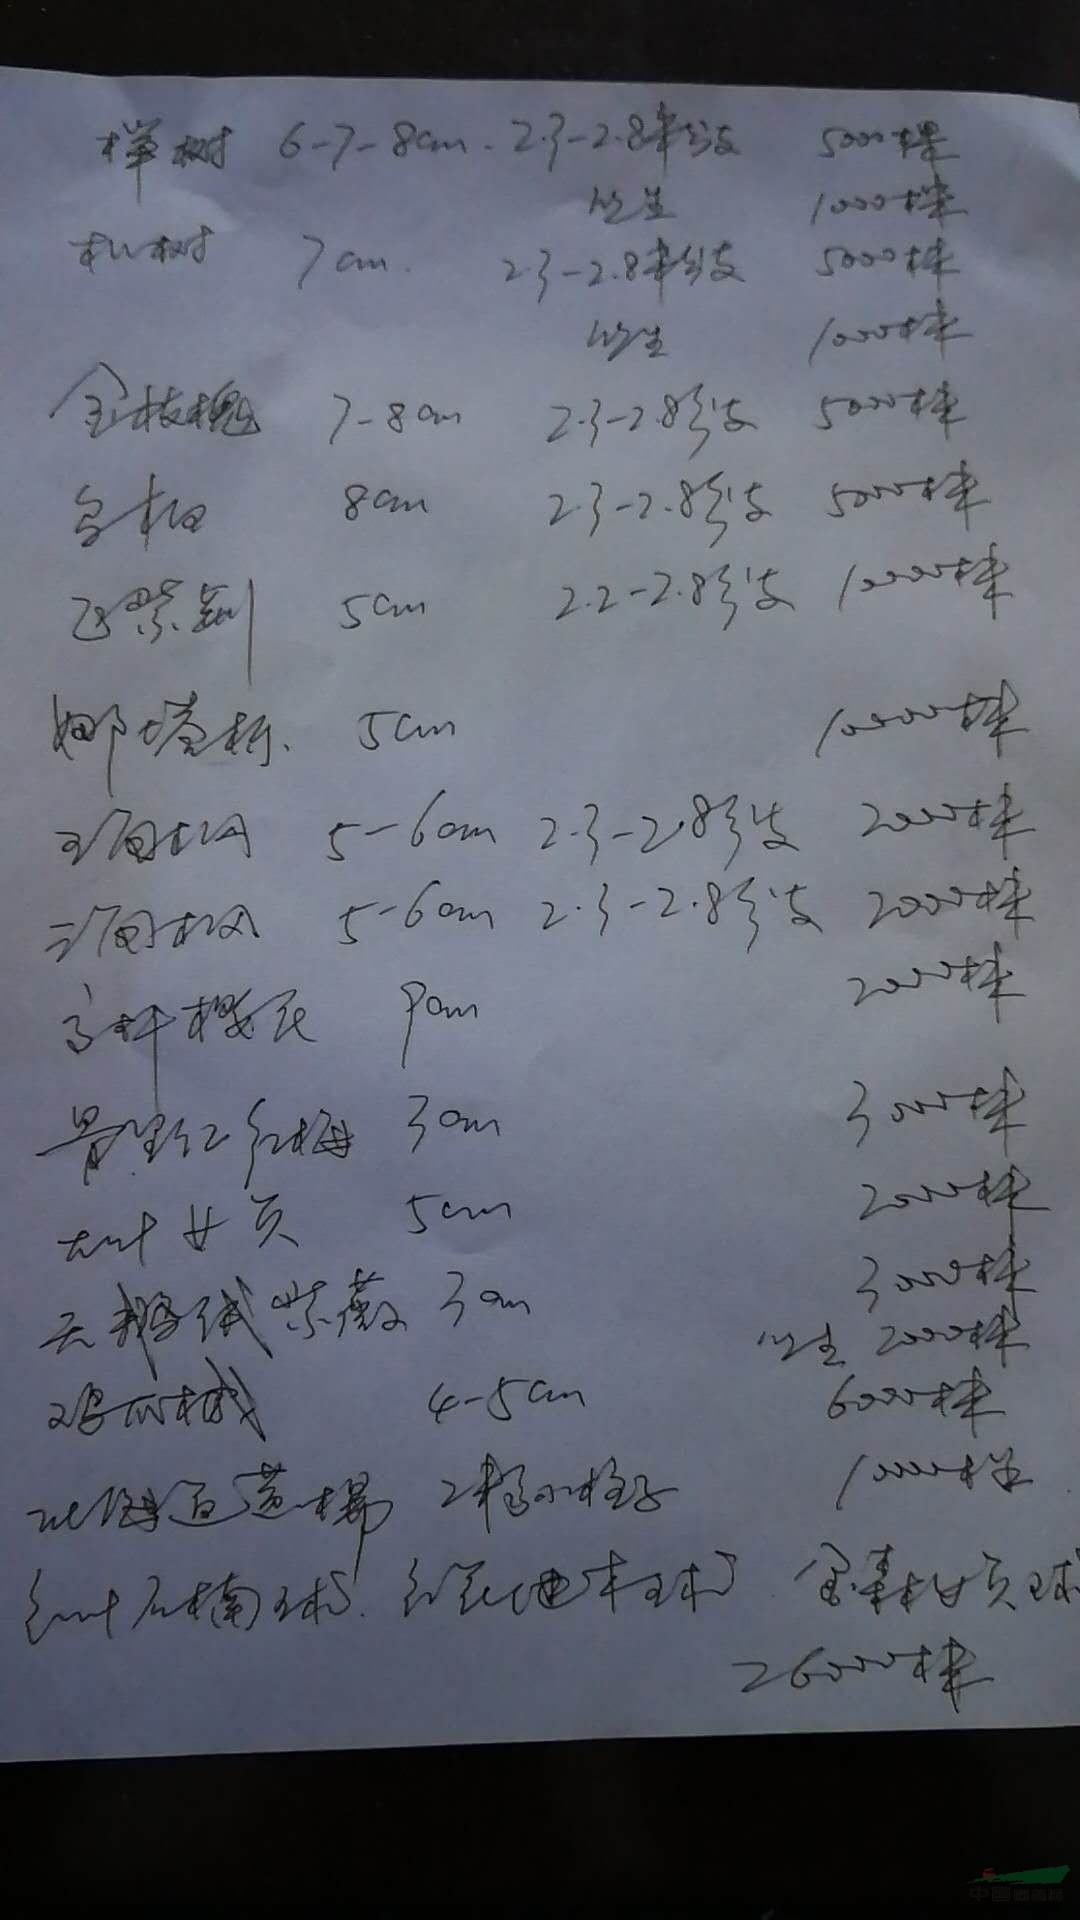 榉树 6-7-8cm. 2.3-2.8米分支 5000棵
丛生 1000株
朴树 7cm. 2.3-2.8米分支 5000株
丛生 1000株
金枝槐 7-8cm 2.3-2.8分支 5000株
乌桕 8cm 2.3-2.8分支 5000株
巨紫荆 5cm 2.2-2.8分支 10000株
娜塔栎. 5cm 10000株
5-6cm 2.3-2.8分支 2000株
三角枫 5-6cm 2.3-2.8分支 2000株
高杆樱花 9cm 2000株
骨里红红梅 3cm 3000株
女贞 5cm 2000株
天鹅绒紫薇 3cm 3000株
丛生 2000株
鸡爪槭 4-5cm 6000株
北海道黄杨 10000株
红叶石楠球. 红花继木球. 金森女贞球
26000株
中国园林网